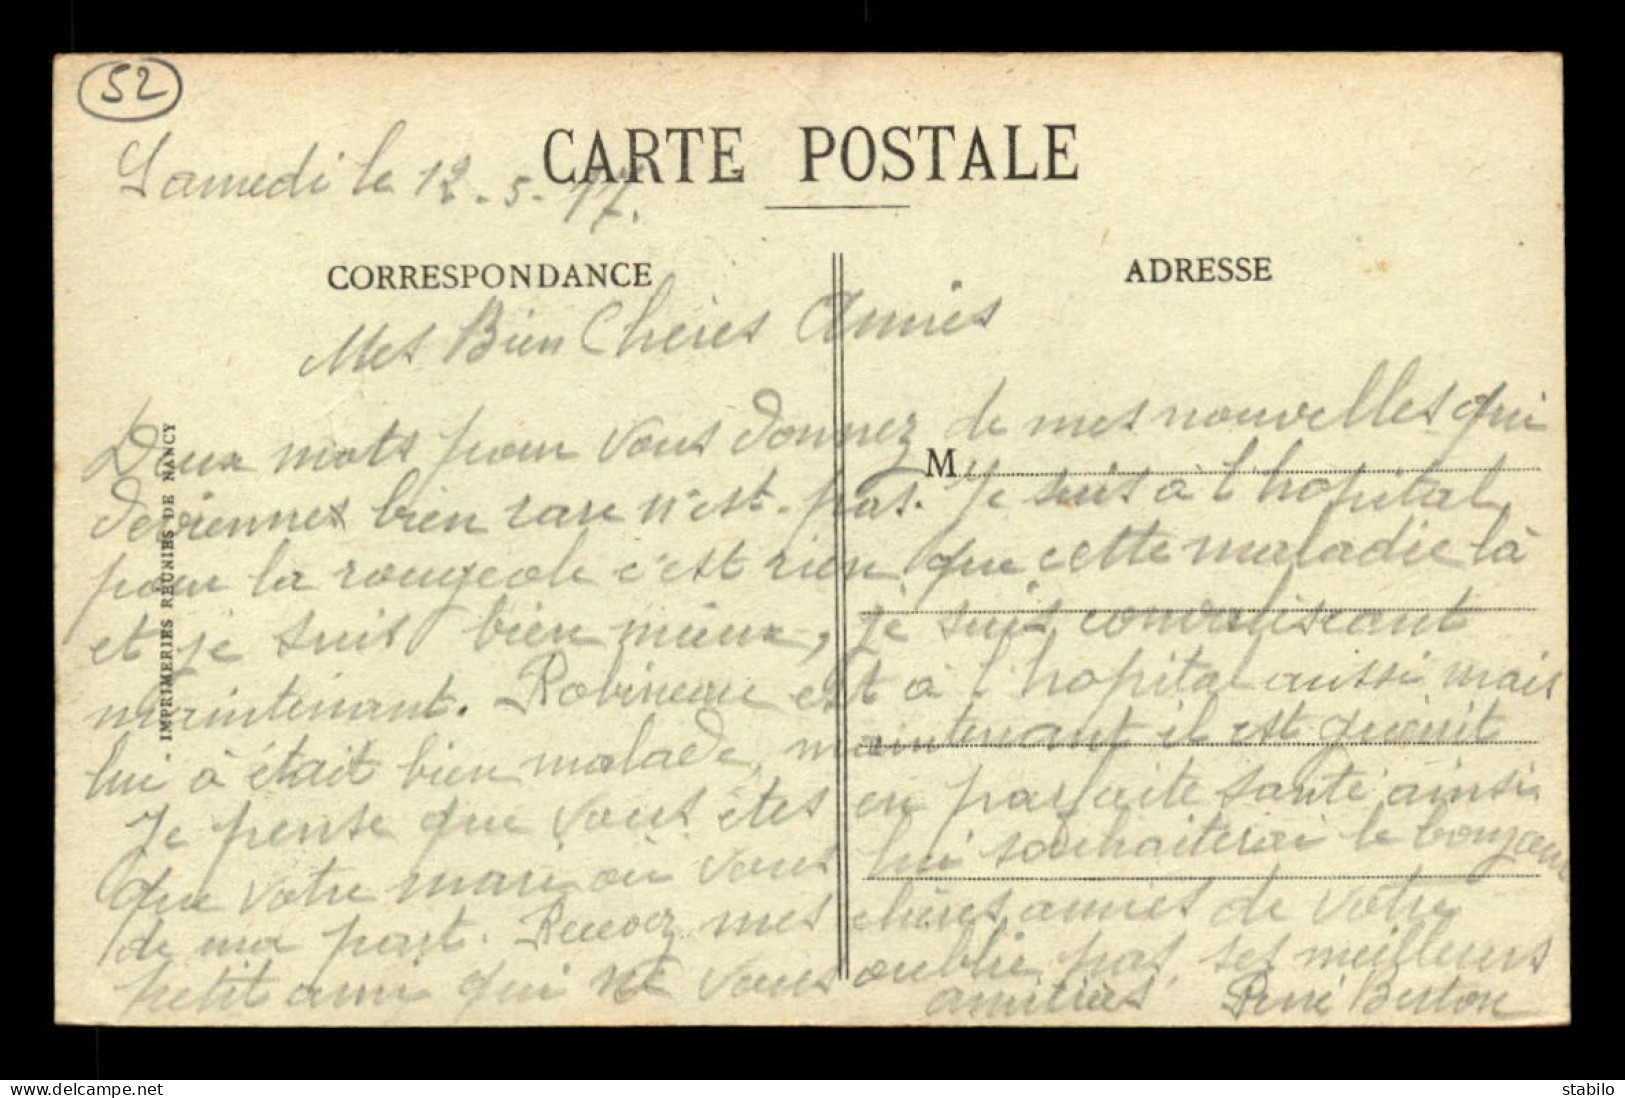 52
Samedi le 12.5.17.
CARTE POSTALE
CORRESPONDANCE
ADRESSE
Mes Bien Chères Amies
Deux mots pour vous donnez de mes nouvelles qui
M
deviennes bien rare n'est-pas. Je suis à l'hopital
pour la rougeole c'est rien que cette maladie là
et je suis bien mieux, je suis convaliscant
maintenant. Robineau est à l'hopital aussi mais
lui à était bien malade, maintenant il est guérit
Je pense que vous êtes en parfaite santé ainsi
que votre mari ou vous lui souhaiterai le bonjour
de ma part. Recevez mes chères amies de votre
petit ami qui ne vous oublie pas, ses meilleurs
amitiés René Berton
IMPRIMERIES RÉUNIES DE NANCY
stabilo